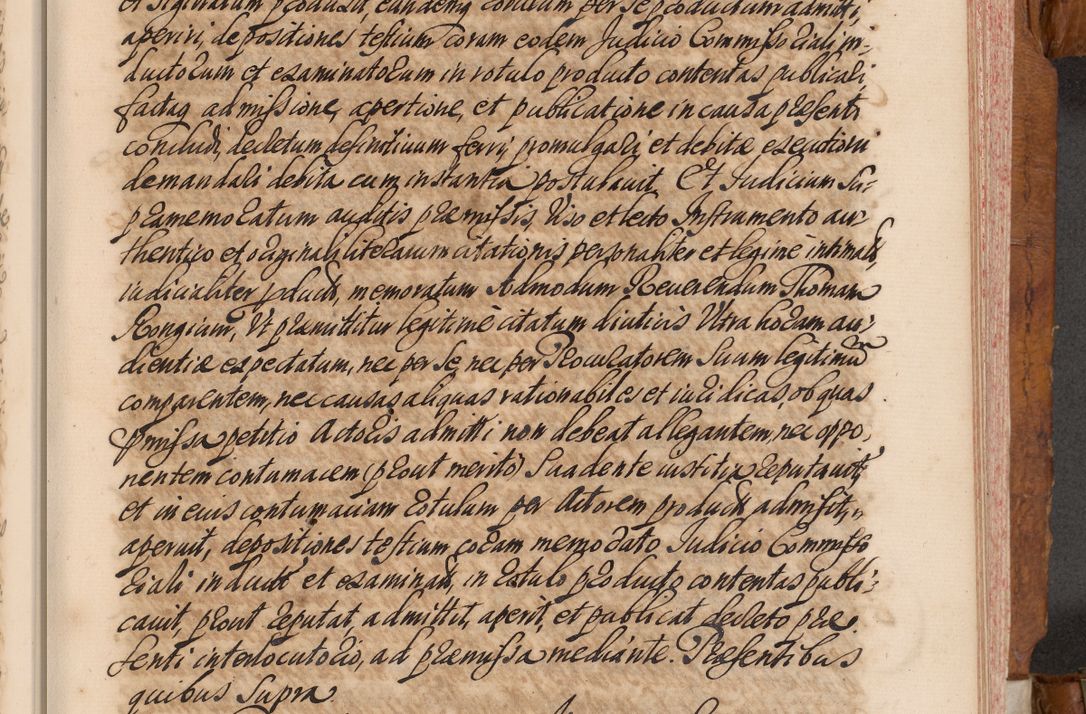 et sigillatum produxit, eundemq rotulum per se productum admitti,
aperiri, depositiones testium coram eodem Judicio Commissoriali in-
ductorum et examinatorum in rotulo producto contentas publicari,
factaq admissione, apertione, et publicatione in causa præsenti
concludi, decretum definitivum ferri, promulgari et debitæ executioni
demandari debita cum instantia postulavit. Et Judicium Su-
pramemoratum auditis præmissis, Viso et lecto Instrumento au-
thentico et originali literarum citationis personaliter et legitime intimat,
iudicialiter product, memoratum Admodum Reverendum Thomam
Rongium, Ut præmittitur legitimè citatum diuticis Ultra horam au-
dientiæ expectatum, nec per Se, nec per Procuratorem Suum legitimum
comparentem, nec causas aliquas rationabiles et iuridicas, ob quas
præmissa petitio Actoris admitti non debeat allegantem, nec oppo-
nentem contumacem (prout meritò) Suadente iustitia reputavit,
et in eius contumaciam rotulum per Actorem product admisit,
aperuit, depositiones testium coram memorato Judicio Commisso-
riali induct et examinat, in rotulo producto contentas publi-
cavit, prout reputat, admittit, aperit, et publicat decreto præ-
senti interlocutorio, ad præmissa mediante. Præsentibus
quibus Supra.